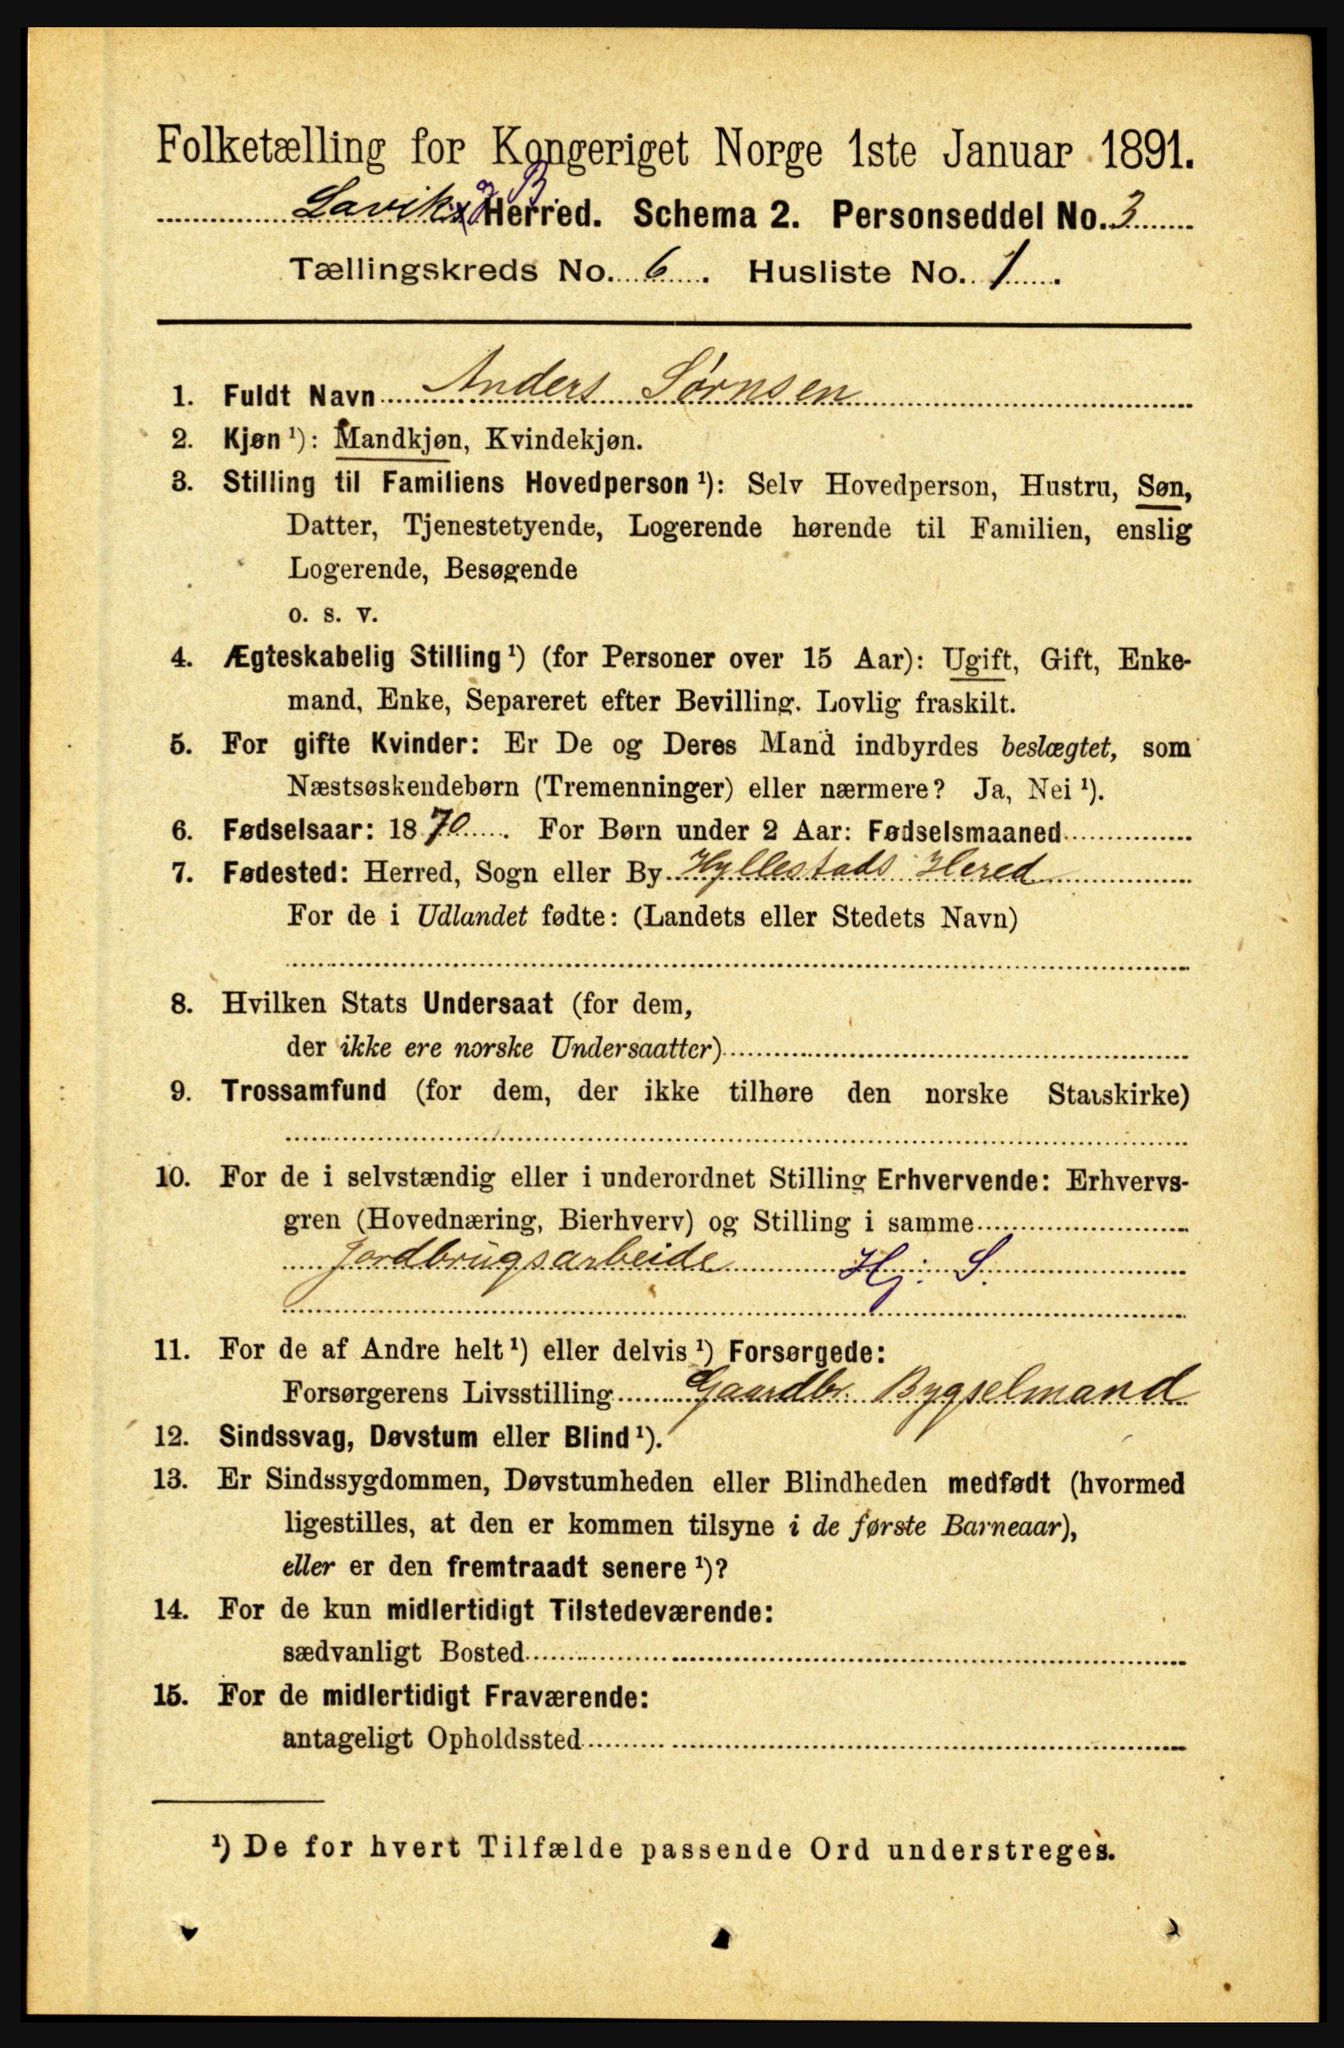 Folketælling for Kongeriget Norge 1ste Januar 1891.
Laviks og B. Herred. Schema 2. Personseddel No. 3
Tællingskreds No. 6. Husliste No. 1.
1. Fuldt Navn Anders Sørnsen
2. Kjøn¹): Mandkjøn, Kvindekjøn.
3. Stilling til Familiens Hovedperson¹): Selv Hovedperson, Hustru, Søn,
Datter, Tjenestetyende, Logerende hørende til Familien, enslig
Logerende, Besøgende
o. s. v.
4. Ægteskabelig Stilling¹) (for Personer over 15 Aar): Ugift, Gift, Enke-
mand, Enke, Separeret efter Bevilling. Lovlig fraskilt.
5. For gifte Kvinder: Er De og Deres Mand indbyrdes beslægtet, som
Næstsøskendebørn (Tremenninger) eller nærmere? Ja, Nei¹).
6. Fødselsaar: 1870. For Børn under 2 Aar: Fødselsmaaned
7. Fødested: Herred, Sogn eller By Hyllestads Hered
For de i Udlandet fødte: (Landets eller Stedets Navn)
8. Hvilken Stats Undersaat (for dem,
der ikke ere norske Undersaatter)
9. Trossamfund (for dem, der ikke tilhøre den norske Statskirke)
10. For de i selvstændig eller i underordnet Stilling Erhvervende: Erhvervs-
gren (Hovednæring, Bierhverv) og Stilling i samme
Jordbrugsarbeide Hj. S.
11. For de af Andre helt¹) eller delvis¹) Forsørgede:
Forsørgerens Livsstilling Gaardbr. Bygselmand
12. Sindssvag, Døvstum eller Blind¹).
13. Er Sindssygdommen, Døvstumheden eller Blindheden medfødt (hvormed
ligestilles, at den er kommen tilsyne i de første Barneaar),
eller er den fremtraadt senere¹)?
14. For de kun midlertidigt Tilstedeværende:
sædvanligt Bosted
15. For de midlertidigt Fraværende:
antageligt Opholdssted
¹) De for hvert Tilfælde passende Ord understreges.